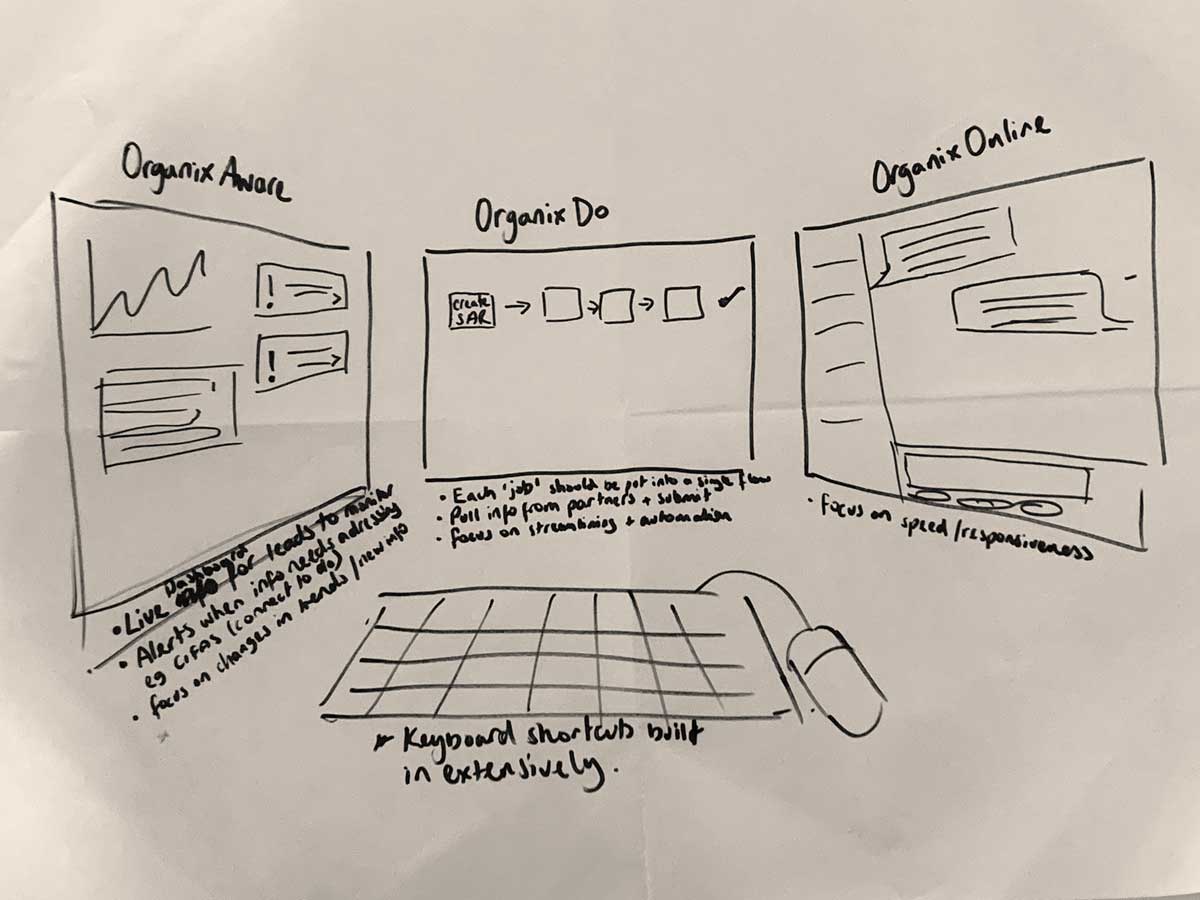 Organix Aware
!
!
• Live Dashboard for leads to monitor
• Alerts when info needs adressing
eg CIFAS (connect to do)
• focus on changes in trends/new info
Organix Do
create
SAR
• Each 'job' should be put into a single flow
• Pull info from partners + submit
• focus on streamlining + automation
Organix Online
• focus on speed/responsiveness
* Keyboard shortcuts built
in extensively.